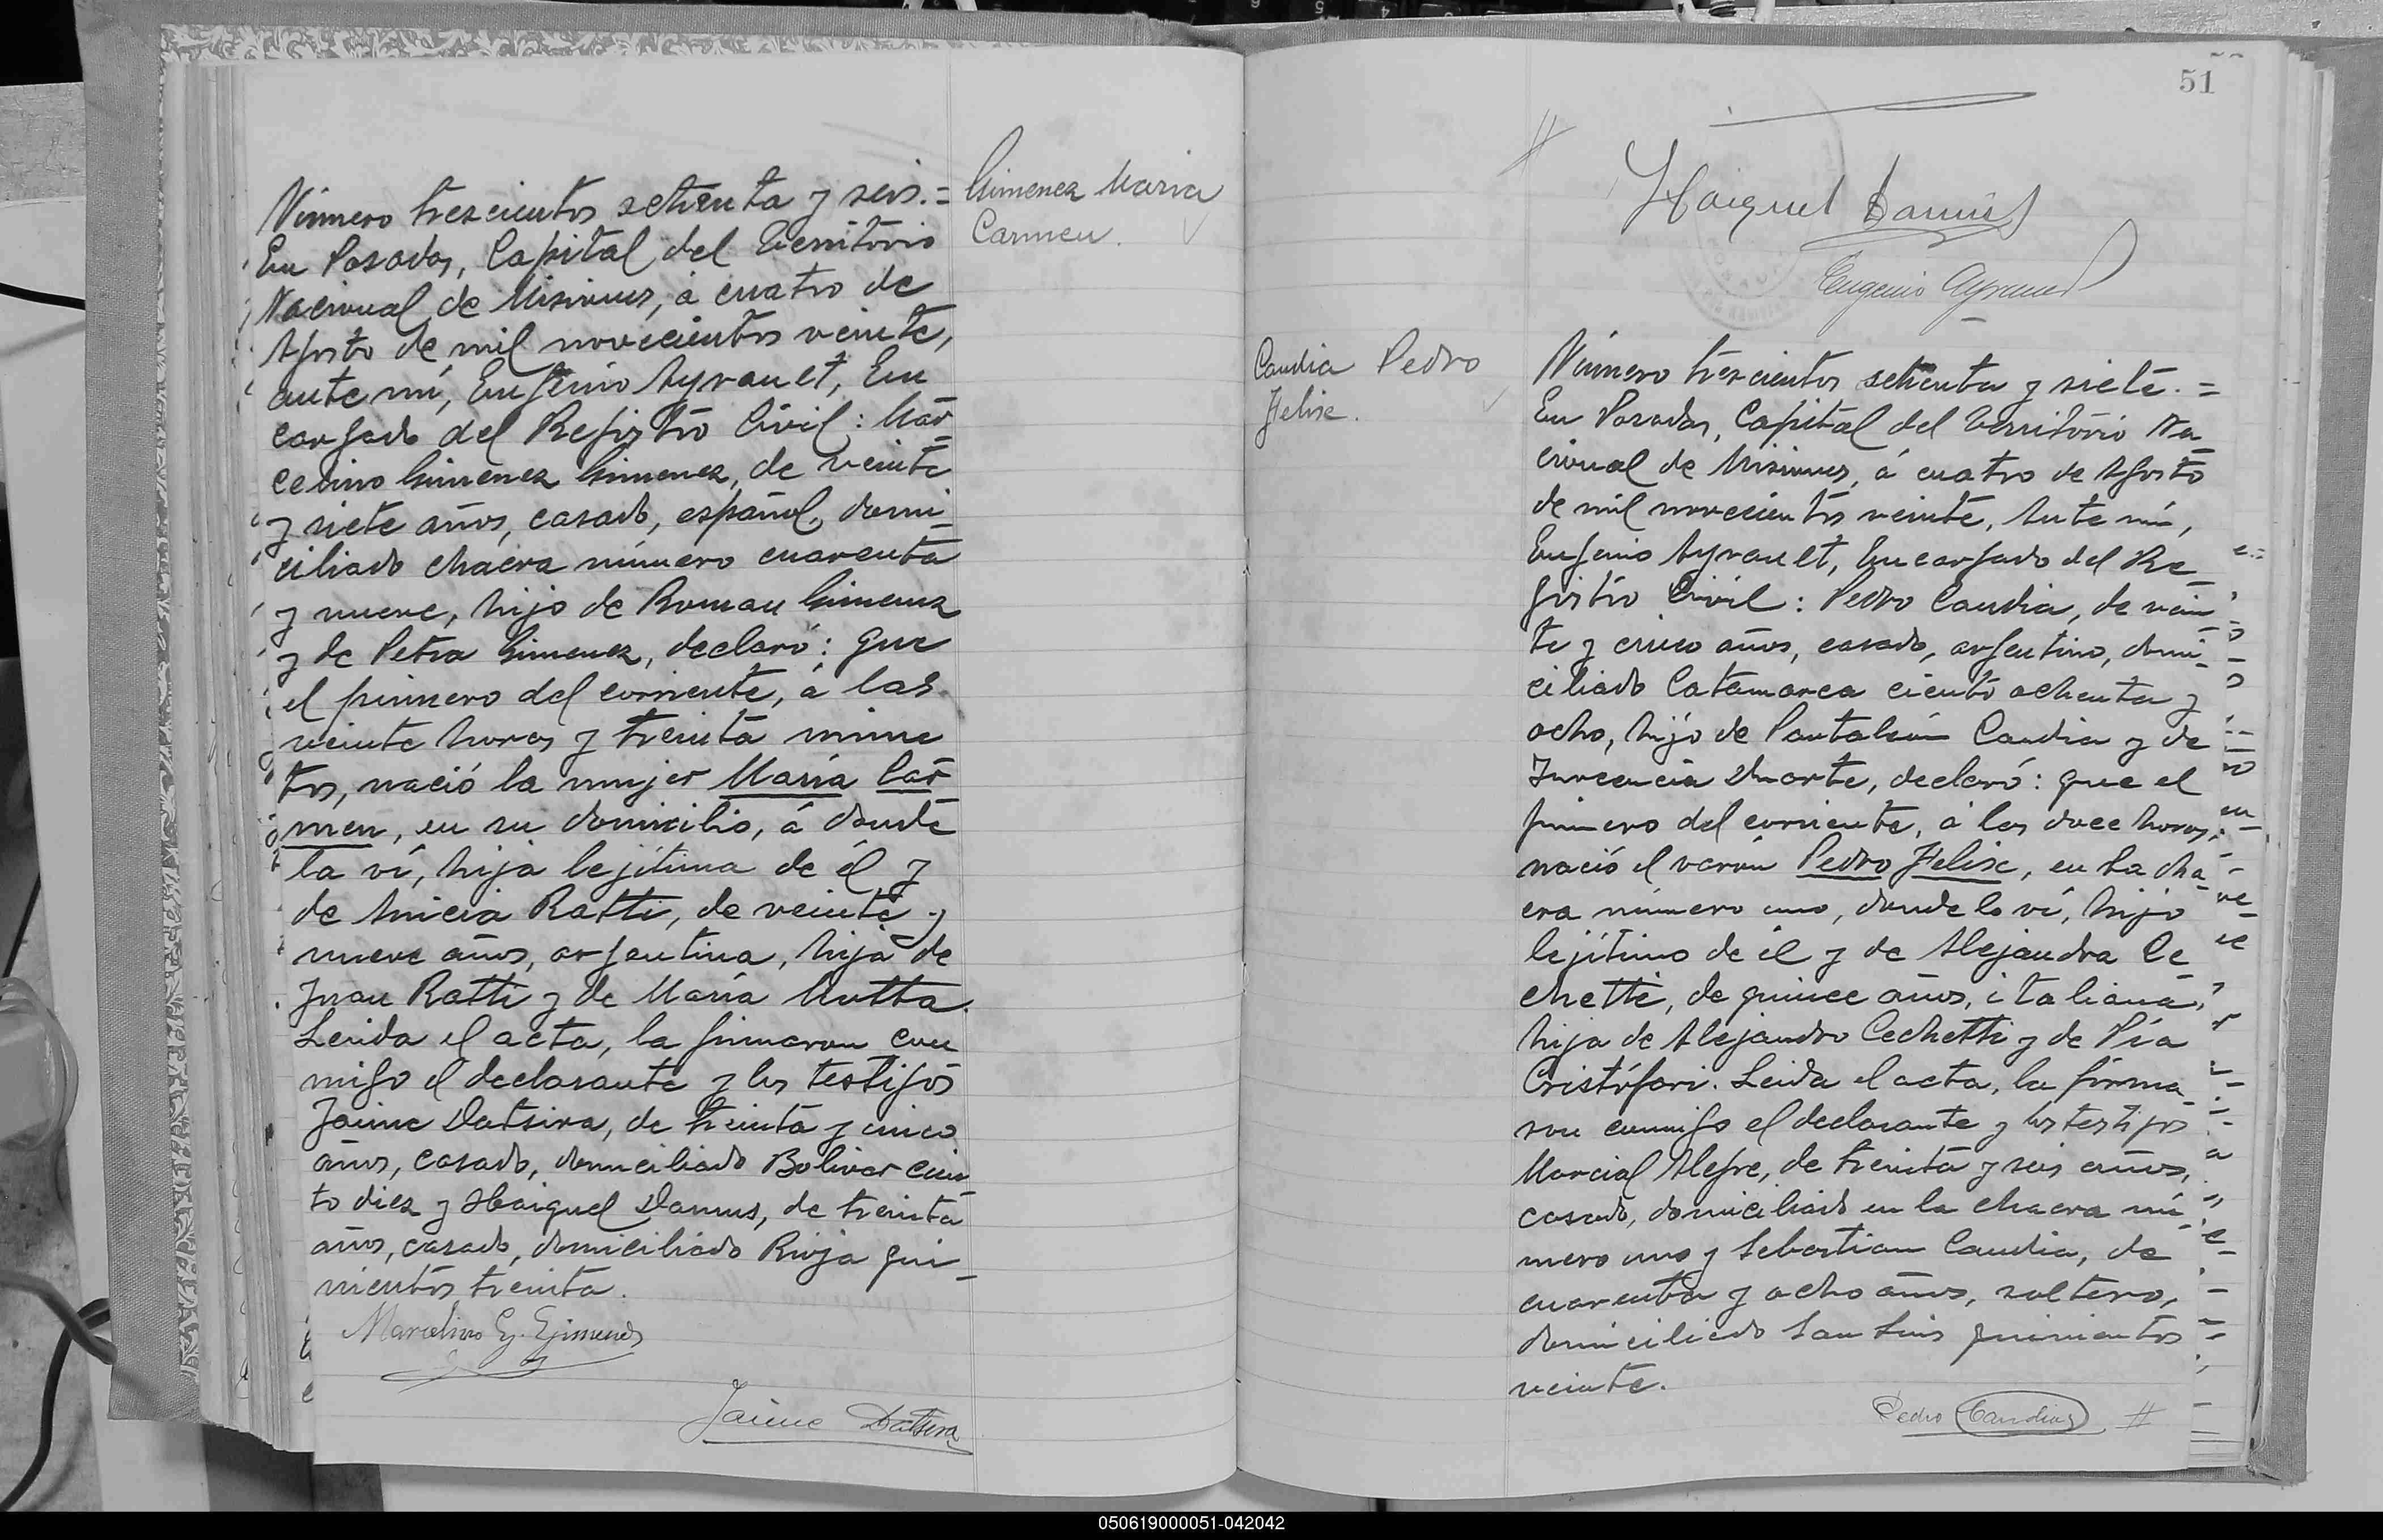 Número trescientos setenta y seis.=
En Posadas, Capital del Territorio
Nacional de Misiones, á cuatro de
Agosto de mil novecientos veinte,
ante mí, Eugenio Ayrault, En
cargado del Registro Civil: Mar
celino Gimenez Gimenez, de veinte
y siete años, casado, español, domi_
ciliado chacra número cuarenta
y nueve, hijo de Roman Gimenez
y de Petra Gimenez, declaró: que
el primero del corriente, á las
veinte horas y treinta minu
tos, nació la mujer María Car
men, en su domicilio, á donde
la ví, hija lejítima de él y
de Anicia Ratti, de veinte y
nueve años, argentina, hija de
Juan Ratti y de María Mutta.
Leida el acta, la firmaron con
migo el declarante y los testigos
Jaime Datsira, de treinta y cinco
años, casado, domiciliado Bolivar cien
to diez y Haiquel Damus, de treinta
años, casado, domiciliado Rioja qui_
nientos treinta.
Marcelino G. Gimenez
Jaime Datsira
Gimenez Maria
Carmen.
51
Haiquel Damus
Eugenio Ayrault
Candia Pedro
Felix.
Número trescientos setenta y siete.=
En Posadas, Capital del Territorio Na_
cional de Misiones, á cuatro de Agosto
de mil novecientos veinte, Ante mí,
Eugenio Ayrault, Encargado del Re_
gistro Civil: Pedro Candia, de vein
te y cinco años, casado, argentino, domi_
ciliado Catamarca ciento ochenta y
ocho, hijo de Pantaleón Candia y de
Inocencia Duarte, declaró: que el
primero del corriente, á las doce horas,
nació el varón Pedro Felix, en la cha_
cra número uno, donde lo ví, hijo
lejítimo de él y de Alejandra Ce_
chetti, de quince años, italiana,
hija de Alejandro Cechetti y de Pía
Cristófari. Leida el acta, la firma_
ron conmigo el declarante y los testigos
Marcial Alegre, de treinta y seis años,
casado, domiciliado en la chacra nú_
mero uno y Sebastian Candia, de
cuarenta y ocho años, soltero,
domiciliado San Luis quinientos
veinte.
Pedro Candia
050619000051-042042